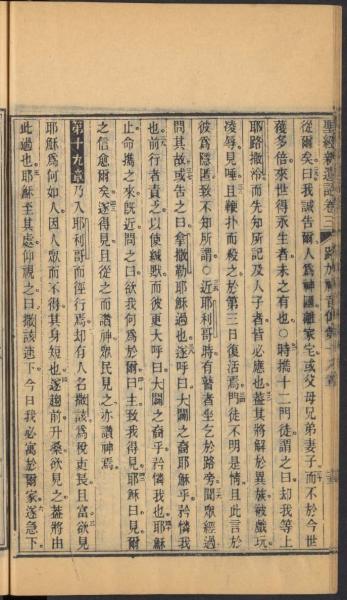 聖經新遺詔卷三 路加福音傳第十八章
從爾矣曰我誠告爾人為神國離家宅或父母兄弟妻子而不於今世
獲多倍來世得永生者未之有也○時攜十二門徒謂之曰却我等上
耶路撒冷而先知所記及人子者皆必應也蓋其將解於異族被戲玩
凌辱見唾且鞭扑而殺之於第三日復活焉門徒不明是情且此言於
彼為隱匿致不知所謂○近耶利哥時有瞽者坐乞於路旁聞眾經過
問其故或告之曰拿撒勒耶穌過也遂呼曰大闢之裔耶穌乎矜憐我
也前行者責之以使緘默而彼更大呼曰大闢之裔乎矜憐我也耶穌
止命攜之來既近問之曰欲我何為於爾曰主致我得見耶穌曰見爾
之信愈爾矣遂得見且從之而讚神眾民見之亦讚神焉
第十九章乃入耶利哥而徑行焉却有人名撒該為稅吏長且富欲見
耶穌為何如人因人眾而不得其身短也遂趨前升桑欲見之蓋將由
此過也耶穌至其處仰視之曰撒該速下今日我必寓於爾家遂急下